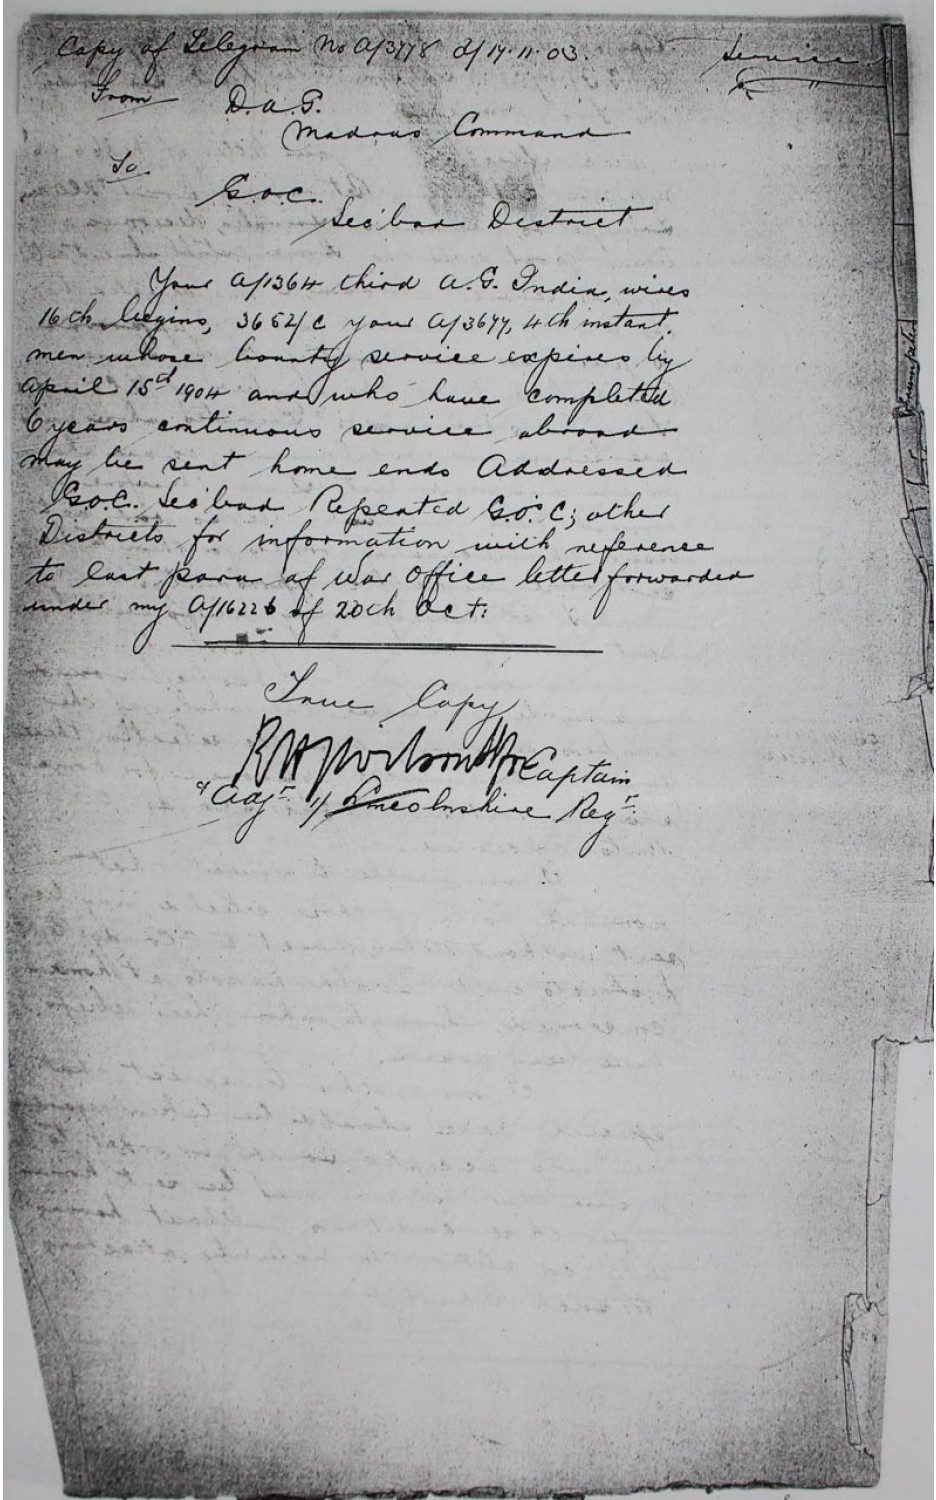 Copy of Telegram No A/3778 d/17.11.03. Service
From D.A.G.
Madras Command
To
G.O.C.
Sec'bad District
Your A/1364 third A.G. India, wires
16th begins, 3652/C your A/3677, 4th instant.
men whose bounty service expires by
April 15th 1904 and who have completed
6 years continuous service abroad
may be sent home ends Addressed
G.O.C. Sec'bad Repeated G.O.C; other
Districts for information with reference
to last para of War Office letter forwarded
under my A/16226 of 20th Oct:
True Copy
Captain
Adjt 1/ Lincolnshire Regt.